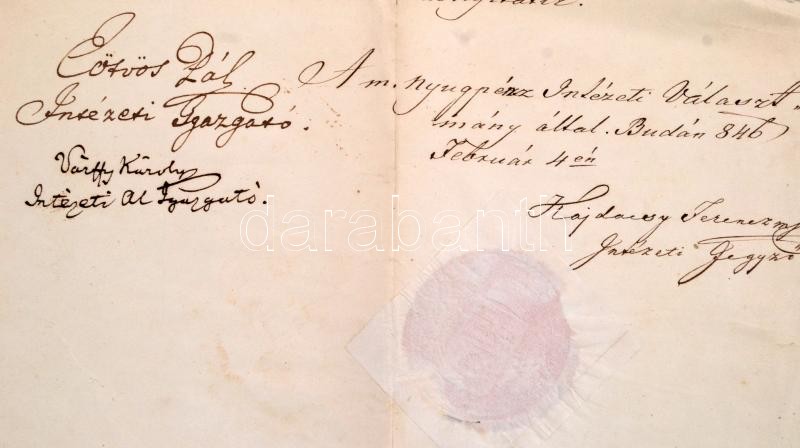 Eötvös Pál
Intézeti Igazgató.
Várffy Károly
Intézeti Al Igazgató.
A m. nyugpénz Intézeti Választ
mány által. Budán 846
Február 4én
Hajdacsy Ferencz
Intézeti Jegyző
darabanth